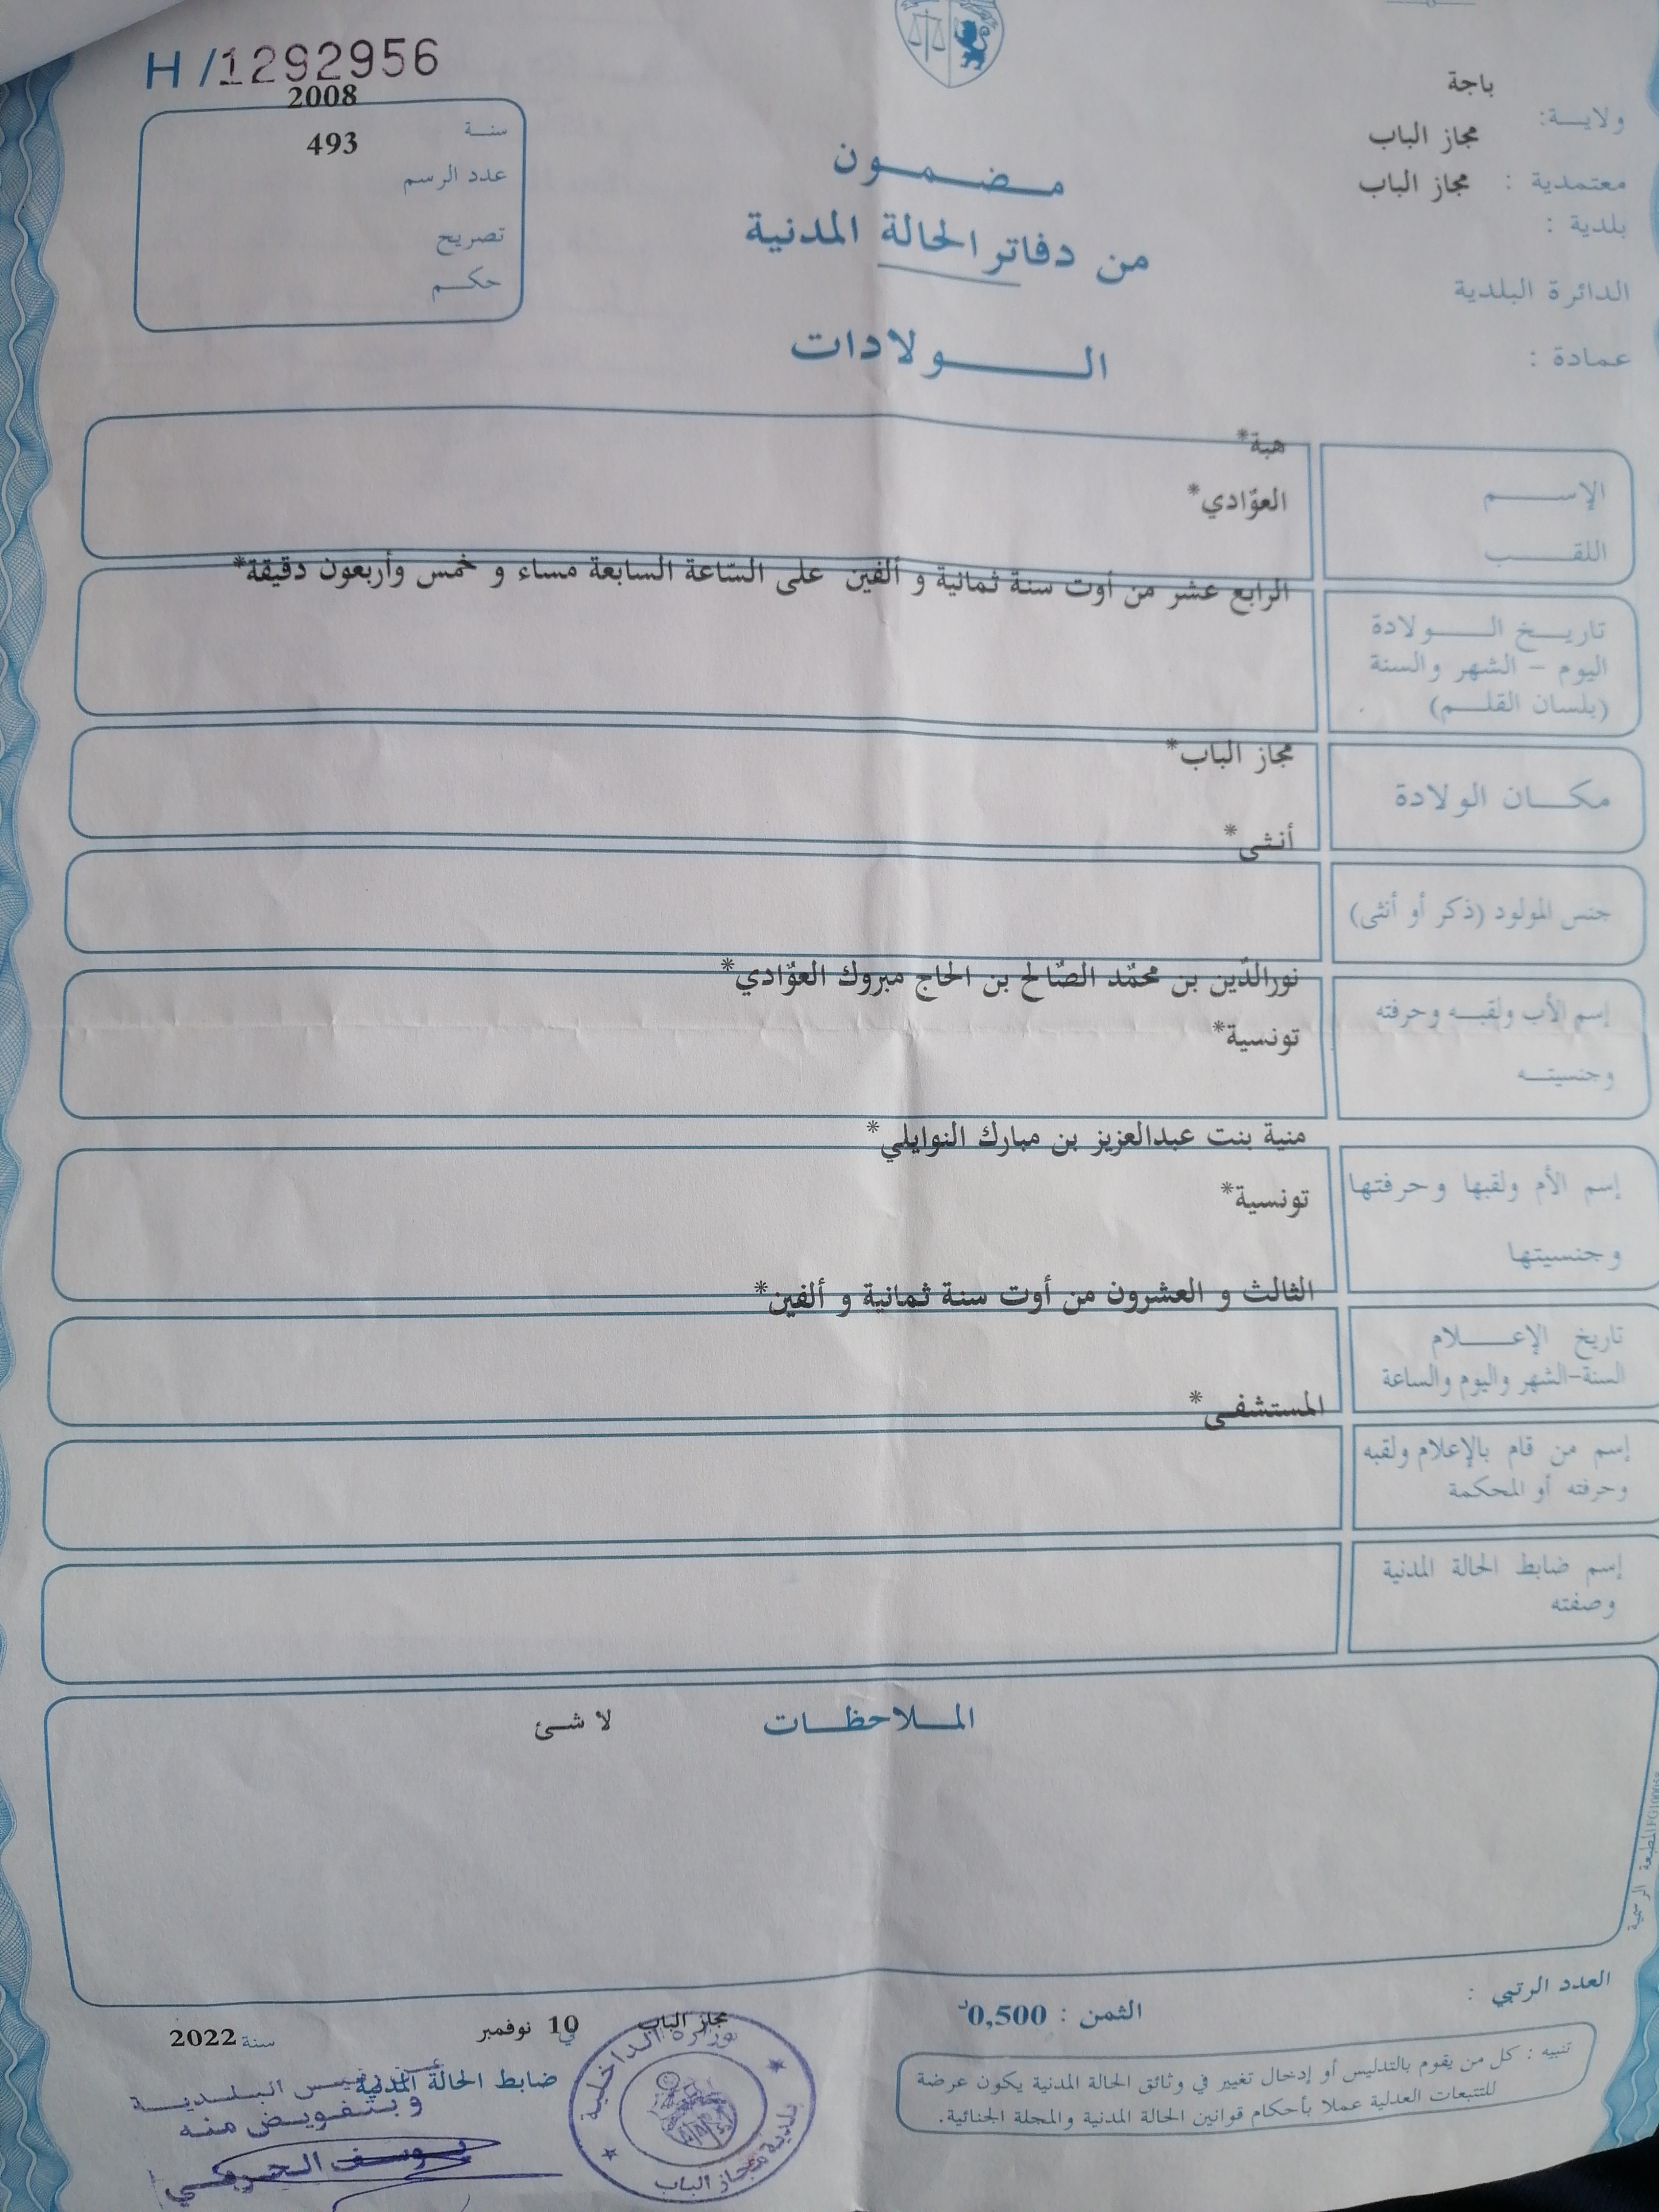 H/1292956
2008
سنة
493
عدد الرسم
تصريح
حكم
باجة
ولاية:
مجاز الباب
معتمدية :
مجاز الباب
بلدية :
الدائرة البلدية
عمادة :
مضمون
من دفاتر الحالة المدنية
الولادات
هبة*
الإسم
العوّادي*
اللقب
الرابع عشر من أوت سنة ثمانية و ألفين على السّاعة السابعة مساء و خمس وأربعون دقيقة*
تاريخ الولادة
اليوم – الشهر والسنة
(بلسان القلم)
مجاز الباب*
مكان الولادة
أنثى*
جنس المولود (ذكر أو أنثى)
نورالدّين بن محمّد الصّالح بن الحاج مبروك العوّادي*
إسم الأب ولقبه وحرفته
تونسية*
وجنسيته
منية بنت عبدالعزيز بن مبارك النوايلي*
إسم الأم ولقبها وحرفتها
تونسية*
وجنسيتها
الثالث و العشرون من أوت سنة ثمانية و ألفين*
تاريخ الإعلام
السنة-الشهر واليوم والساعة
المستشفى*
إسم من قام بالإعلام ولقبه
وحرفته أو المحكمة
إسم ضابط الحالة المدنية
وصفته
الملاحظات
لا شئ
المطبعة الرسمية
العدد الرتبي :
الثمن : 0,500د
مجاز الباب
في 10 نوفمبر
سنة 2022
ضابط الحالة المدنية
رئيس البلدية
وبتفويض منه
وزارة الداخلية
بلدية مجاز الباب
تنبيه : كل من يقوم بالتدليس أو إدخال تغيير في وثائق الحالة المدنية يكون عرضة
للتتبعات العدلية عملا بأحكام قوانين الحالة المدنية والمجلة الجنائية.